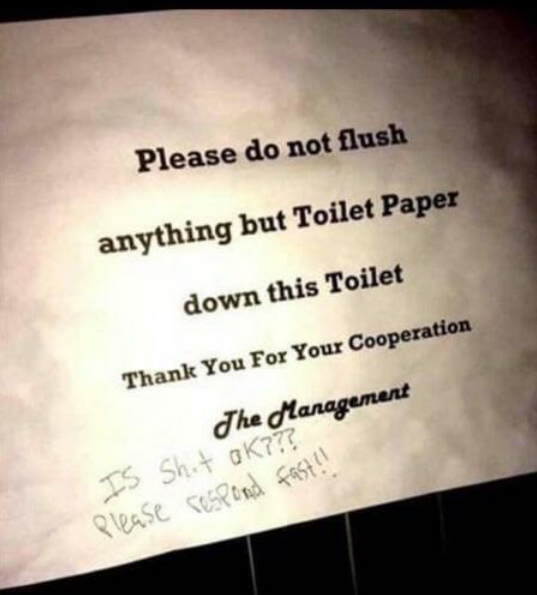 Please do not flush
anything but Toilet Paper
down this Toilet
Thank You For Your Cooperation
The Management
IS Sh.t OK???
Please respond fast!!